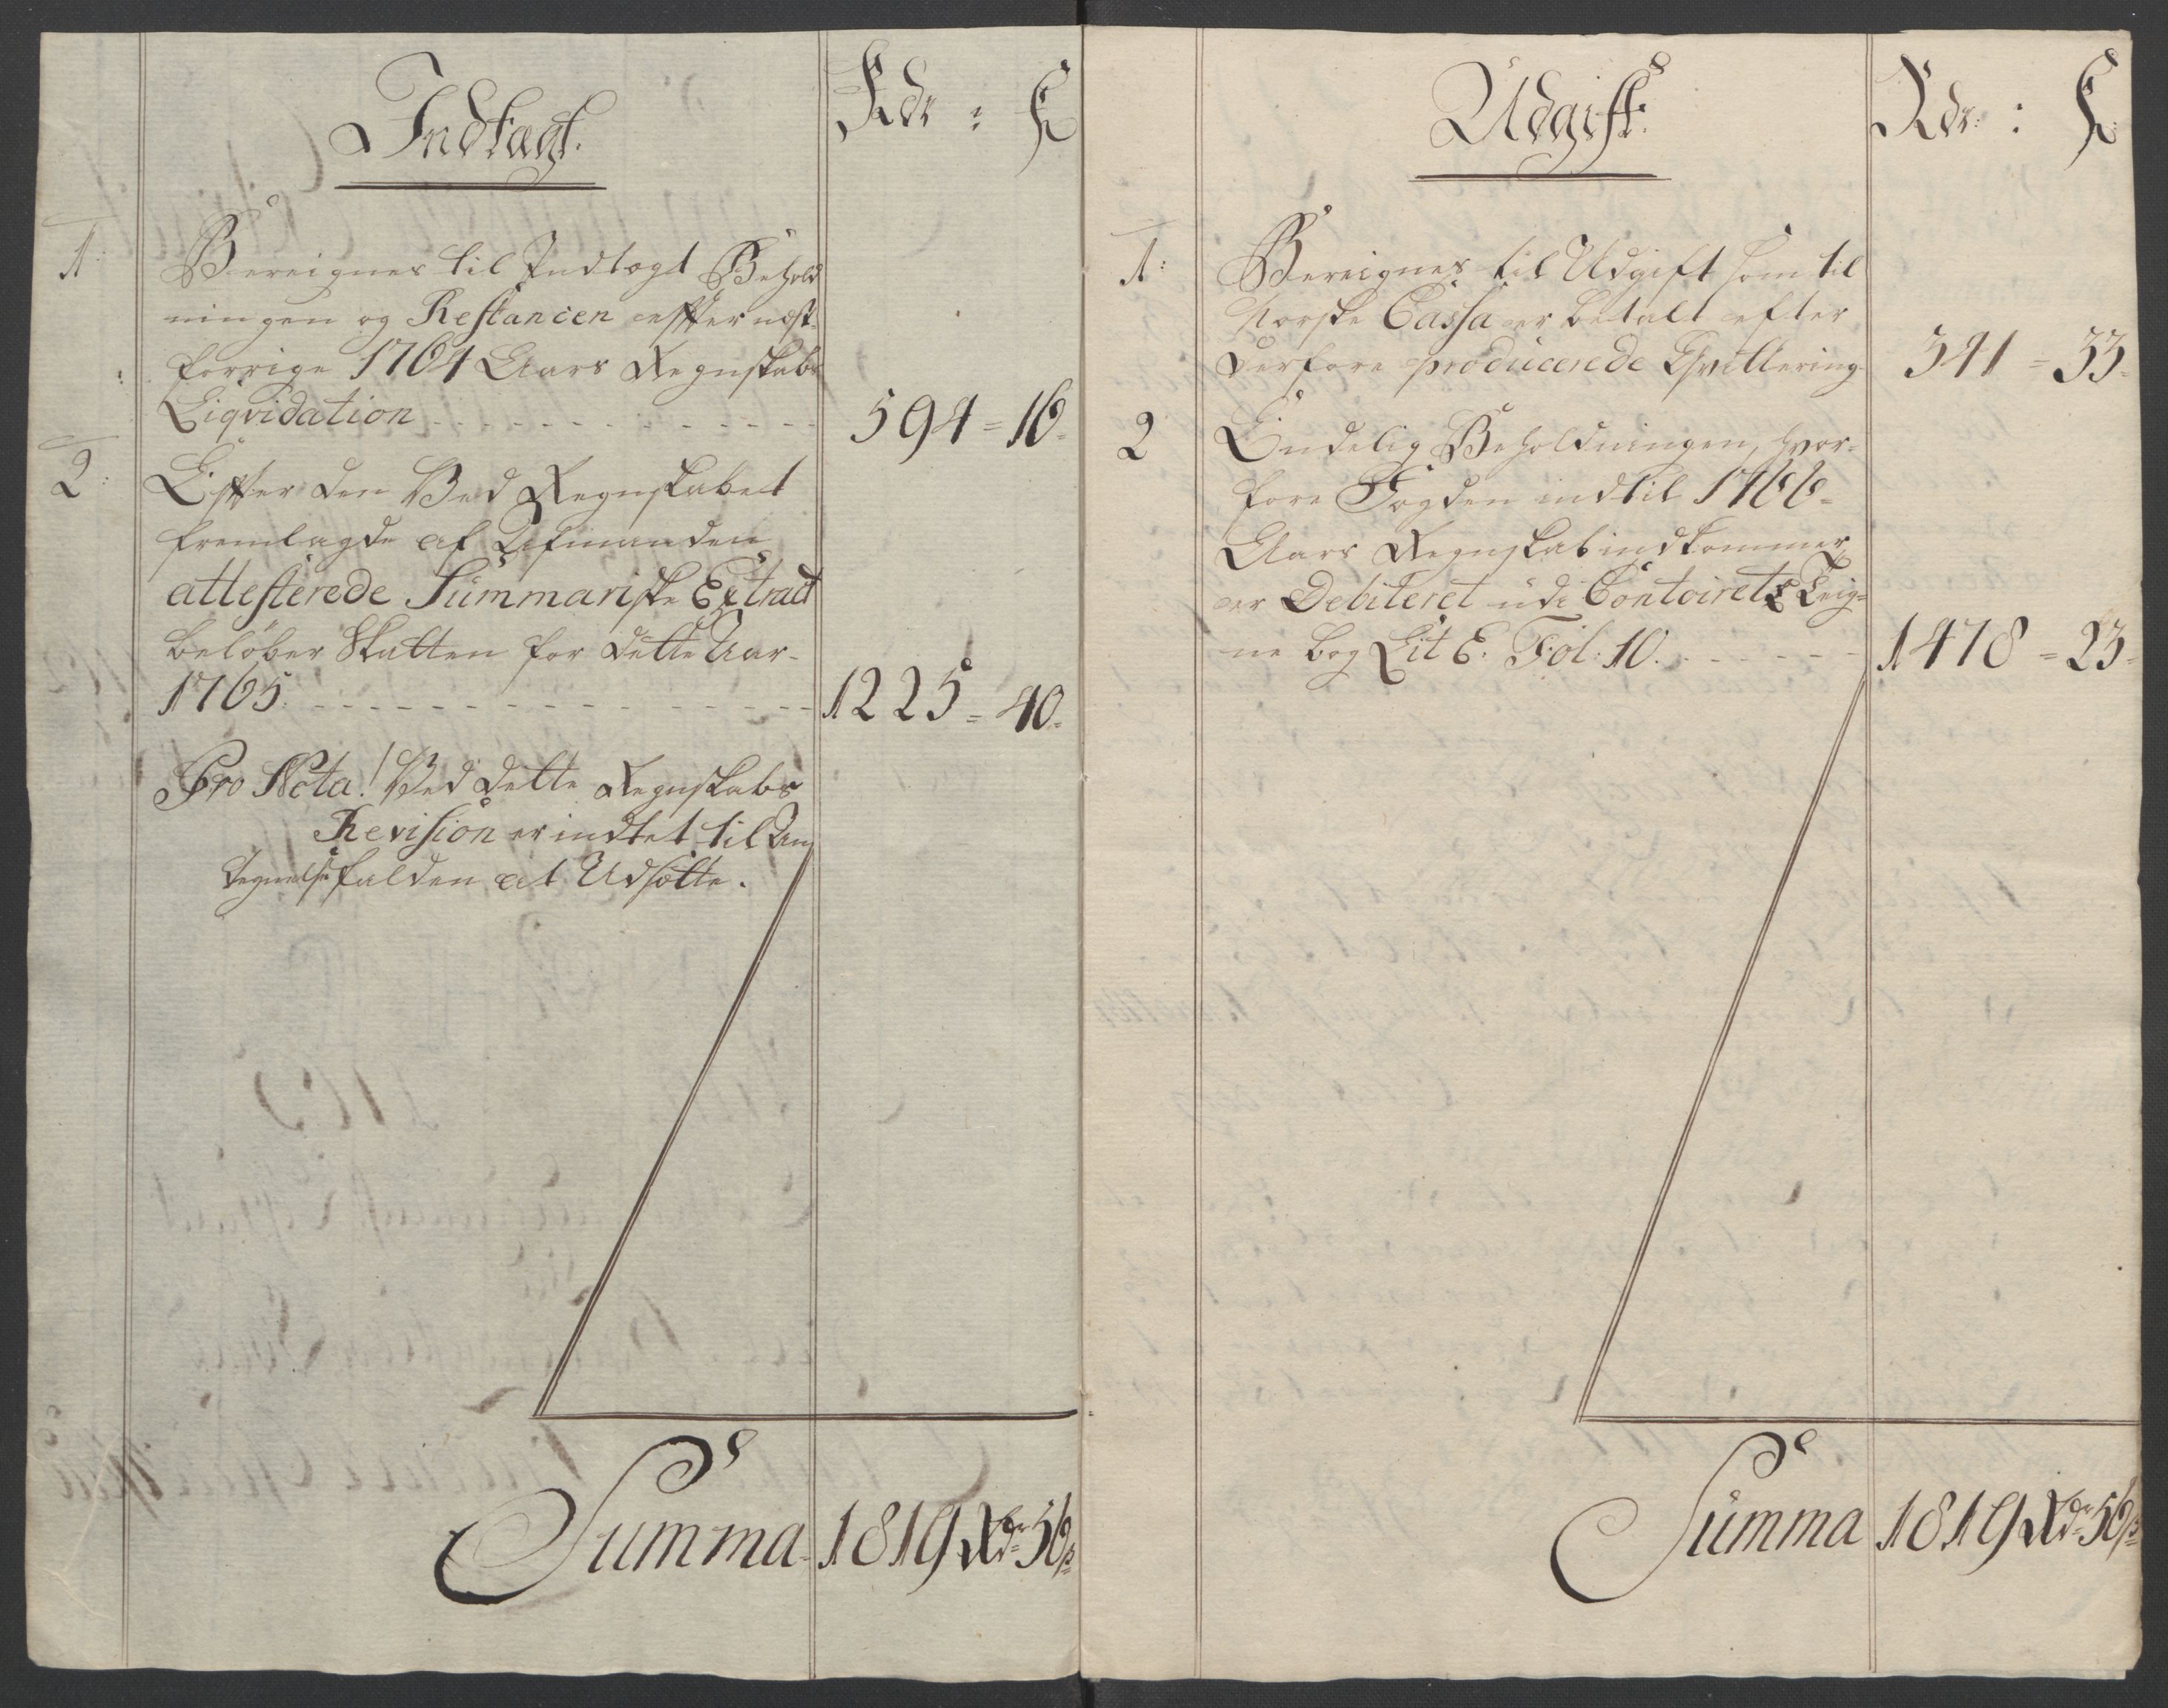 Indtægt.
Rdr : ß
1:
Bereignes til Indtægt Behold
ningen og Restancen effter næst-
forrige 1764 Aars Regnskabs
Liqvidation - - - - - - - - 594 = 16.
2:
Effter den Ved Regnskabet
fremlagde af
attesterede Summariske Extract
beløber Skatten for dette Aar-
1765. - - - - - - - - 1225 = 40.
Pro Nota! Ved dette Regnskabs
Revision er indtet til An
tegnelse falden at Udsætte.
Summa 1819 Rdr 56 ß
Udgift.
Rdr : ß
1:
Bereignes til Udgift som til
Norske Cassa er betalt efter
derfore producerede Qvittering 341 = 33.
2
Endelig Beholdningen, hvor-
fore Fogden indtil 1766-
Aars Regnskab indkommer
er Debiteret udi Contoirets Teig-
ne bog Lit E. Fol: 10. - - - - - 1478 = 23.
Summa 1819 Rdr 56 ß